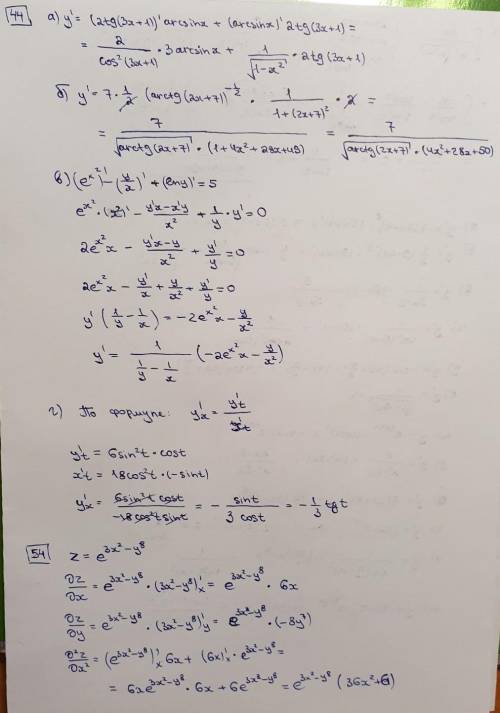 44 а) y' = (2tg(3x+1))' arcsinx + (arcsinx)' 2tg(3x+1) =
= 2/cos²(3x+1) · 3 arcsinx + 1/√(1-x²) · 2tg(3x+1)
б) y' = 7 · 1/2 (arctg(2x+7))^(-1/2) · 1/(1+(2x+7)²) · 2 =
= 7/(√(arctg(2x+7)) · (1+4x²+28x+49)) = 7/(√(arctg(2x+7)) · (4x²+28x+50))
в) (e^(x²))' - (y/x)' + (lny)' = 5
e^(x²) · (x²)' - (y'x-x'y)/x² + 1/y · y' = 0
2e^(x²)x - (y'x-y)/x² + y'/y = 0
2e^(x²)x - y'/x + y/x² + y'/y = 0
y'(1/y - 1/x) = -2e^(x²)x - y/x²
y' = 1/(1/y - 1/x) (-2e^(x²)x - y/x²)
г) По формуле: y'x = y't/x't
y't = 6sin²t · cost
x't = 18cos²t · (-sint)
y'x = 6sin²t cost/(-18cos²t sint) = - sint/(3 cost) = - 1/3 tgt
54 z = e^(3x²-y⁸)
∂z/∂x = e^(3x²-y⁸) · (3x²-y⁸)'x = e^(3x²-y⁸) · 6x
∂z/∂y = e^(3x²-y⁸) · (3x²-y⁸)'y = e^(3x²-y⁸) · (-8y⁷)
∂²z/∂x² = (e^(3x²-y⁸))'x 6x + (6x)'x · e^(3x²-y⁸) =
= 6xe^(3x²-y⁸) · 6x + 6e^(3x²-y⁸) = e^(3x²-y⁸) (36x²+6)